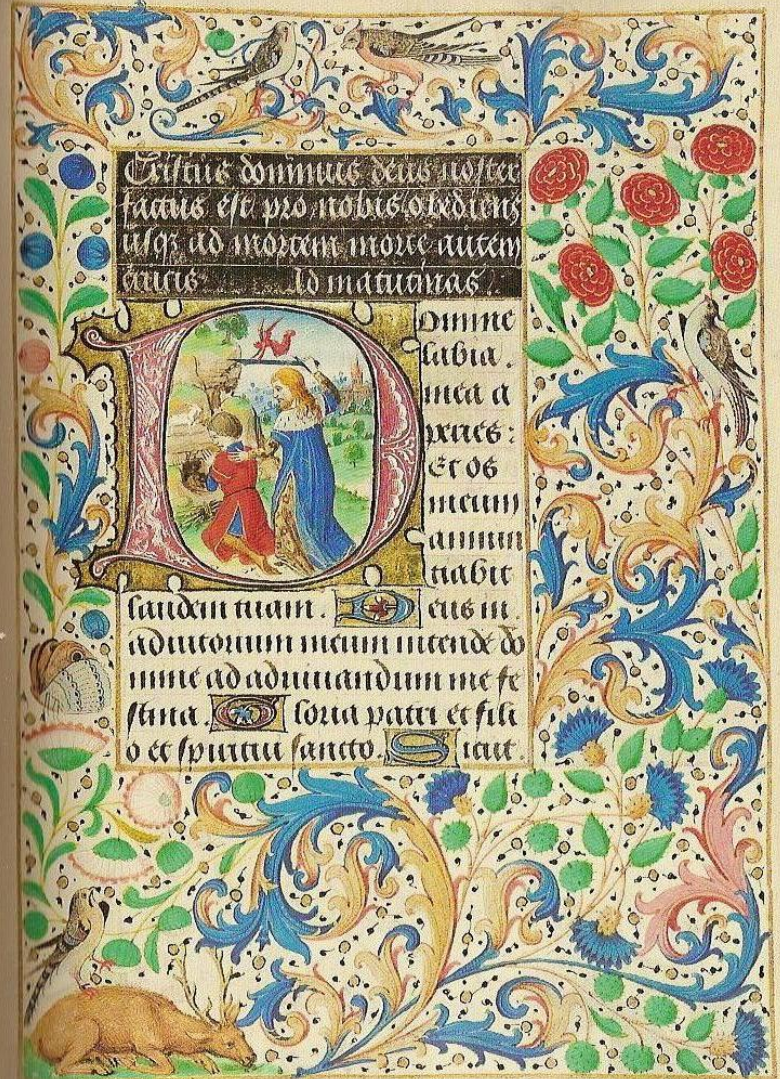 Cristus dominus deus noster
factus est pro nobis obediens
usq3 ad mortem morte autem
crucis Ad matutinas
Domine
labia .
mea a
peries :
Et os
meum
annun
tiabit
laudem tuam . Deus in
adiutorium meum intende do
mine ad adiuuandum me fe
stina . Gloria patri et fili
o et spiritui sancto . Sicut